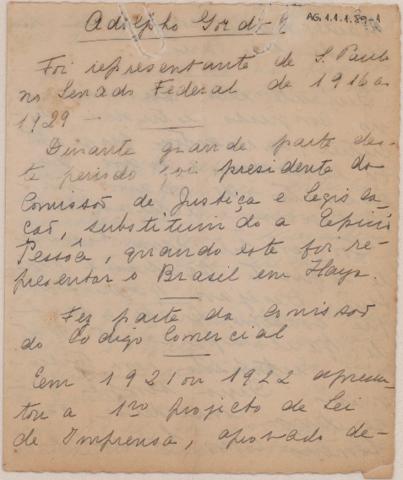 Adolpho Gordo
AG.1.1.1.89-1
Foi representante de S. Paulo
no Senado Federal de 1916 a
1929 —
Durante grande parte des-
te periodo foi presidente da
Comissão de Justiça e Legisla-
cão, substituindo a Epicio
Pessôa, quando este foi re-
presentar o Brasil em Haya.
Fez parte da Comissão
do Codigo Comercial
Em 1921 ou 1922 apresen-
tou a 1ro projecto de Lei
de Imprensa, aprovado de-